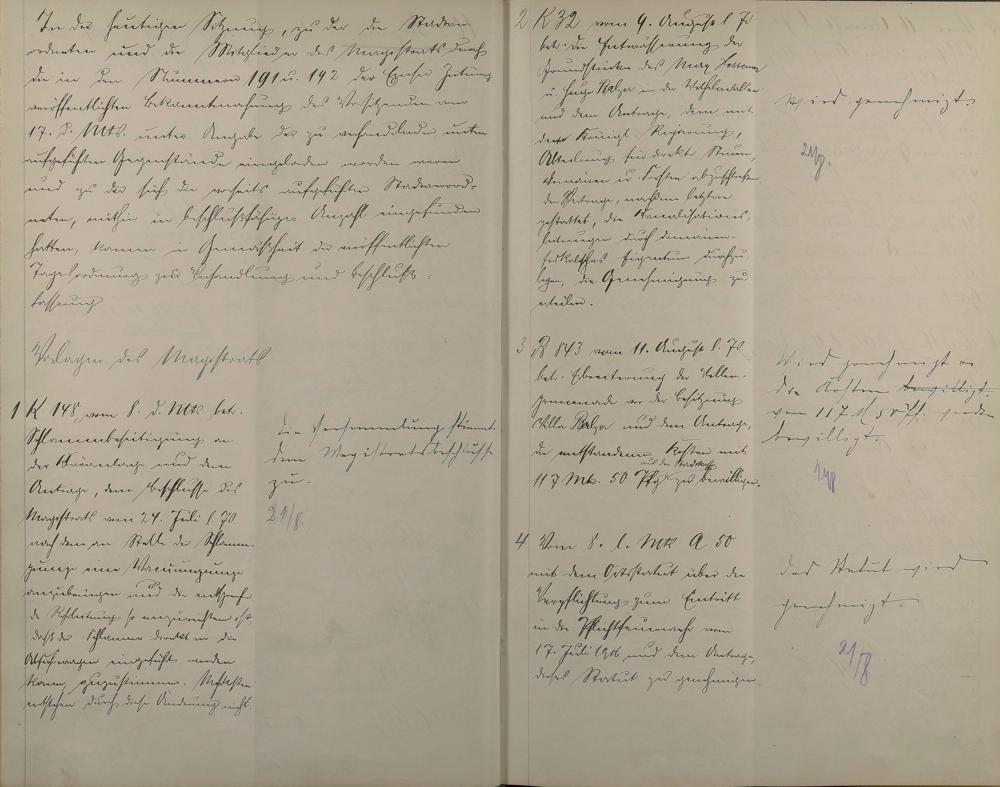 In der heutigen Sitzung, zu der die Stadtver-
ordneten und die Mitglieder des Magistrats durch
die in den Nummern 191 u. 192 der Emser Zeitung
veröffentlichten Bekanntmachung des Vorsitzenden vom
17. d. Mts. unter Angabe der zu verhandelnden unten
aufgeführten Gegenstände eingeladen worden waren
und zu der sich die vorseits aufgeführten Stadtverord-
neten, mithin in beschlußfähiger Anzahl eingefunden
hatten, kamen in Gemäßheit der veröffentlichten
Tagesordnung zur Verhandlung und Beschluß-
fassung
Vorlagen des Magistrats
1 K 148, vom 8. d. Mts. betr.
Schlammbeseitigung an
der Kläranlage und dem
Antrage, dem Beschlusse des
Magistrats vom 24. Juli l. Js.
nach dem an Stelle der Schlamm-
pumpe eine Vacuumpumpe
anzubringen und die
so einzurichten ist,
daß der Schlamm direkt in die
Abfuhrwagen eingeführt werden
kann, zuzustimmen. Mehrkosten
entstehen durch diese Änderung nicht
Die Versammlung stimmt
dem Magistratsbeschlusse
zu.
21/8.
2 K 32 vom 9. August l. Js.
betr. die Entwässerung der
Grundstücke des Max
u. Hugo Balzer in der Wilhelmsallee
und dem Antrage, dem mit
der Königl. Regierung,
Abteilung für direkte Steuern,
Domänen u. Forsten abzuschließen-
den Vertrage, nachdem letztere
gestattet, die Kanalisations-
leitungen durch domänen-
fiskalisches Eigentum durchzu-
legen, die Genehmigung zu
erteilen.
Wird genehmigt.
21/8.
3 B 843 vom 11. August l. Js.
betr. Erweiterung der
promenade vor der Besitzung
Villa Balzer und dem Antrage,
die entstandenen Kosten mit
aus der Stadtkasse
117 Mk. 50 Pfg zu bewilligen.
Wird genehmigt u.
die Kosten bewilligt.
von 117 M 50 Pf. werden
bewilligt.
21/8
4 Vom 8. l. Mts A 50
mit dem Ortsstatut über die
Verpflichtung zum Eintritt
in die Pflichtfeuerwehr vom
17. Juli 1906 und dem Antrage,
dieses Statut zu genehmigen
Das Statut wird
genehmigt.
21/8